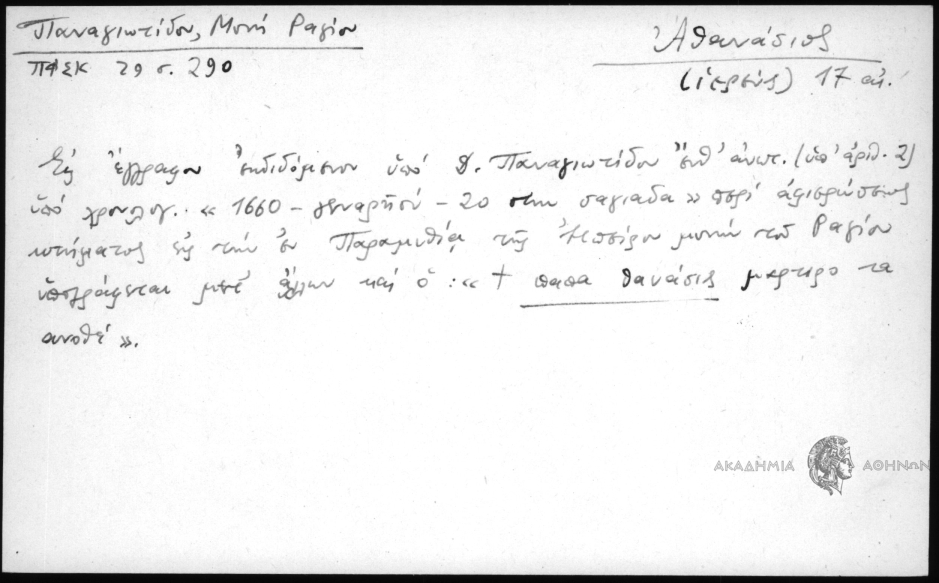 Παναγιωτίδου, Μονή Ραγίου
ΠΦΣΚ 29 σ. 290
Ἀθανάσιος
(ἱερεύς) 17 αἰ.
Εἰς ἔγγραφον ἐκδιδόμενον ὑπό Δ. Παναγιωτίδου ἔνθ' ἀνωτ. (ὑπ' ἀριθ. 2)
ὑπό χρονολογ. « 1660 - γεναρηού - 20 στην σαγιαδα » περί ἀφιερώσεως
κτήματος εἰς τήν ἐν Παραμυθίᾳ τῆς Ἠπείρου μονήν τοῦ Ραγίου
ὑπογράφεται μετ' ἄλλων καί ὁ : « † παπα θανάσις μαρτιρο τα
ανοθέ ».
ΑΚΑΔΗΜΙΑ ΑΘΗΝΩΝ